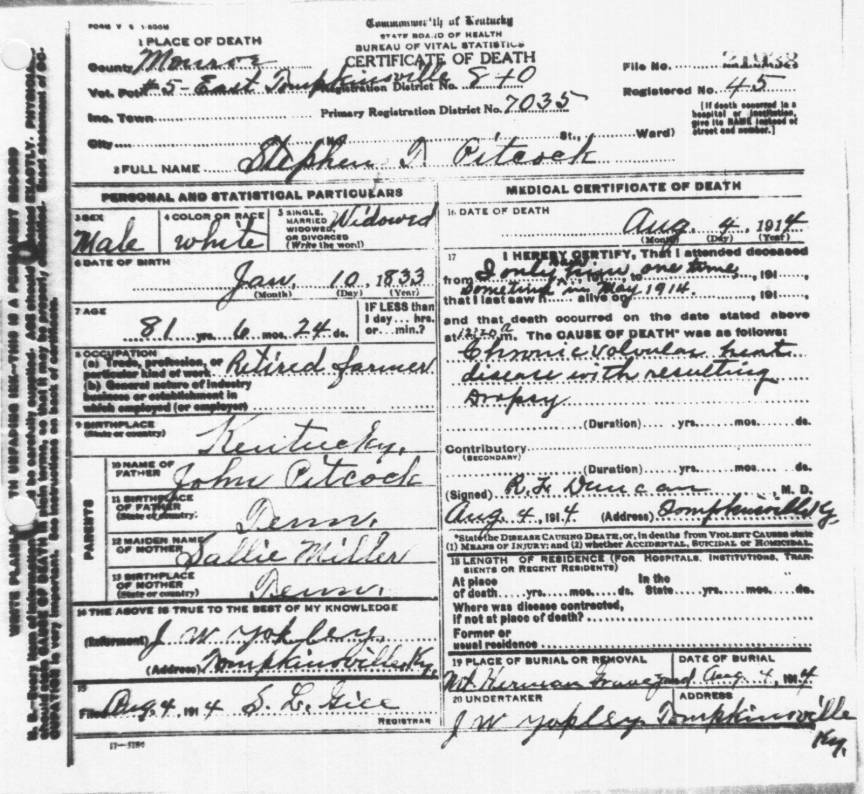 FORM V S 1-500M
Commonwealth of Kentucky
STATE BOARD OF HEALTH
BUREAU OF VITAL STATISTICS
CERTIFICATE OF DEATH
1 PLACE OF DEATH
County Monroe
Vot. Pct #5-East Tompkinsville Registration District No. 840
Inc. Town Primary Registration District No. 7035
City No. St., Ward)
File No. 21938
Registered No. 45
[If death occurred in a
hospital or institution,
give its NAME instead of
street and number.]
2 FULL NAME Stephen T Pitcock
PERSONAL AND STATISTICAL PARTICULARS
3 SEX
Male
4 COLOR OR RACE
white
5 SINGLE,
MARRIED
WIDOWED,
OR DIVORCED
(Write the word)
Widowed
6 DATE OF BIRTH
Jan, 10, 1833
(Month) (Day) (Year)
7 AGE
81 yrs. 6 mos. 24 ds.
IF LESS than
1 day... hrs.
or... min.?
8 OCCUPATION
(a) Trade, profession, or
particular kind of work Retired farmer
(b) General nature of industry
business or establishment in
which employed (or employer)
9 BIRTHPLACE
(State or country)
Kentucky,
PARENTS
10 NAME OF
FATHER
John Pitcock
11 BIRTHPLACE
OF FATHER
(State or country)
Tenn.
12 MAIDEN NAME
OF MOTHER
Sallie Miller
13 BIRTHPLACE
OF MOTHER
(State or country)
Tenn.
14 THE ABOVE IS TRUE TO THE BEST OF MY KNOWLEDGE
(Informant) J W Yokley,
(Address) Tompkinsville, Ky.
15
Filed Aug, 4, 1914 S. L. Gill
REGISTRAR
MEDICAL CERTIFICATE OF DEATH
16 DATE OF DEATH
Aug. 4, 1914
(Month) (Day) (Year)
17 I HEREBY CERTIFY, That I attended deceased
from I only him one time, 191
Sometime in May 1914.
that I last saw h alive on , 191
and that death occurred on the date stated above
at 12:20 a m. The CAUSE OF DEATH* was as follows:
Chronic valvular heart
disease with resulting
Dropsy
(Duration) yrs. mos. ds.
Contributory
(SECONDARY)
(Duration) yrs. mos. ds.
(Signed) R. F. Duncan M. D.
Aug. 4, 1914 (Address) Tompkinsville Ky.
*State the DISEASE CAUSING DEATH, or, in deaths from VIOLENT CAUSES state
(1) MEANS OF INJURY; and (2) whether ACCIDENTAL, SUICIDAL OR HOMICIDAL.
18 LENGTH OF RESIDENCE (FOR HOSPITALS, INSTITUTIONS, TRAN-
SIENTS OR RECENT RESIDENTS)
At place In the
of death yrs. mos. ds. State yrs. mos. ds.
Where was disease contracted,
if not at place of death?
Former or
usual residence
19 PLACE OF BURIAL OR REMOVAL
Mt. Herman Graveyard
DATE OF BURIAL
Aug. 4, 1914
20 UNDERTAKER
J W Yokley
ADDRESS
Tompkinsville
Ky.